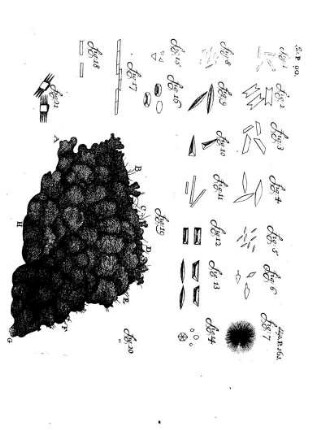 fig: 1
fig: 2
fig: 3
fig: 4
fig: 5
fig: 6
fig: 7
fig: 8
fig: 9
fig: 10
fig: 11
fig: 12
fig: 13
fig: 14
fig: 15
fig: 16
fig: 19
fig: 20
fig: 17
fig: 18
fig: 21
A
B
C
D
E
F
G
H